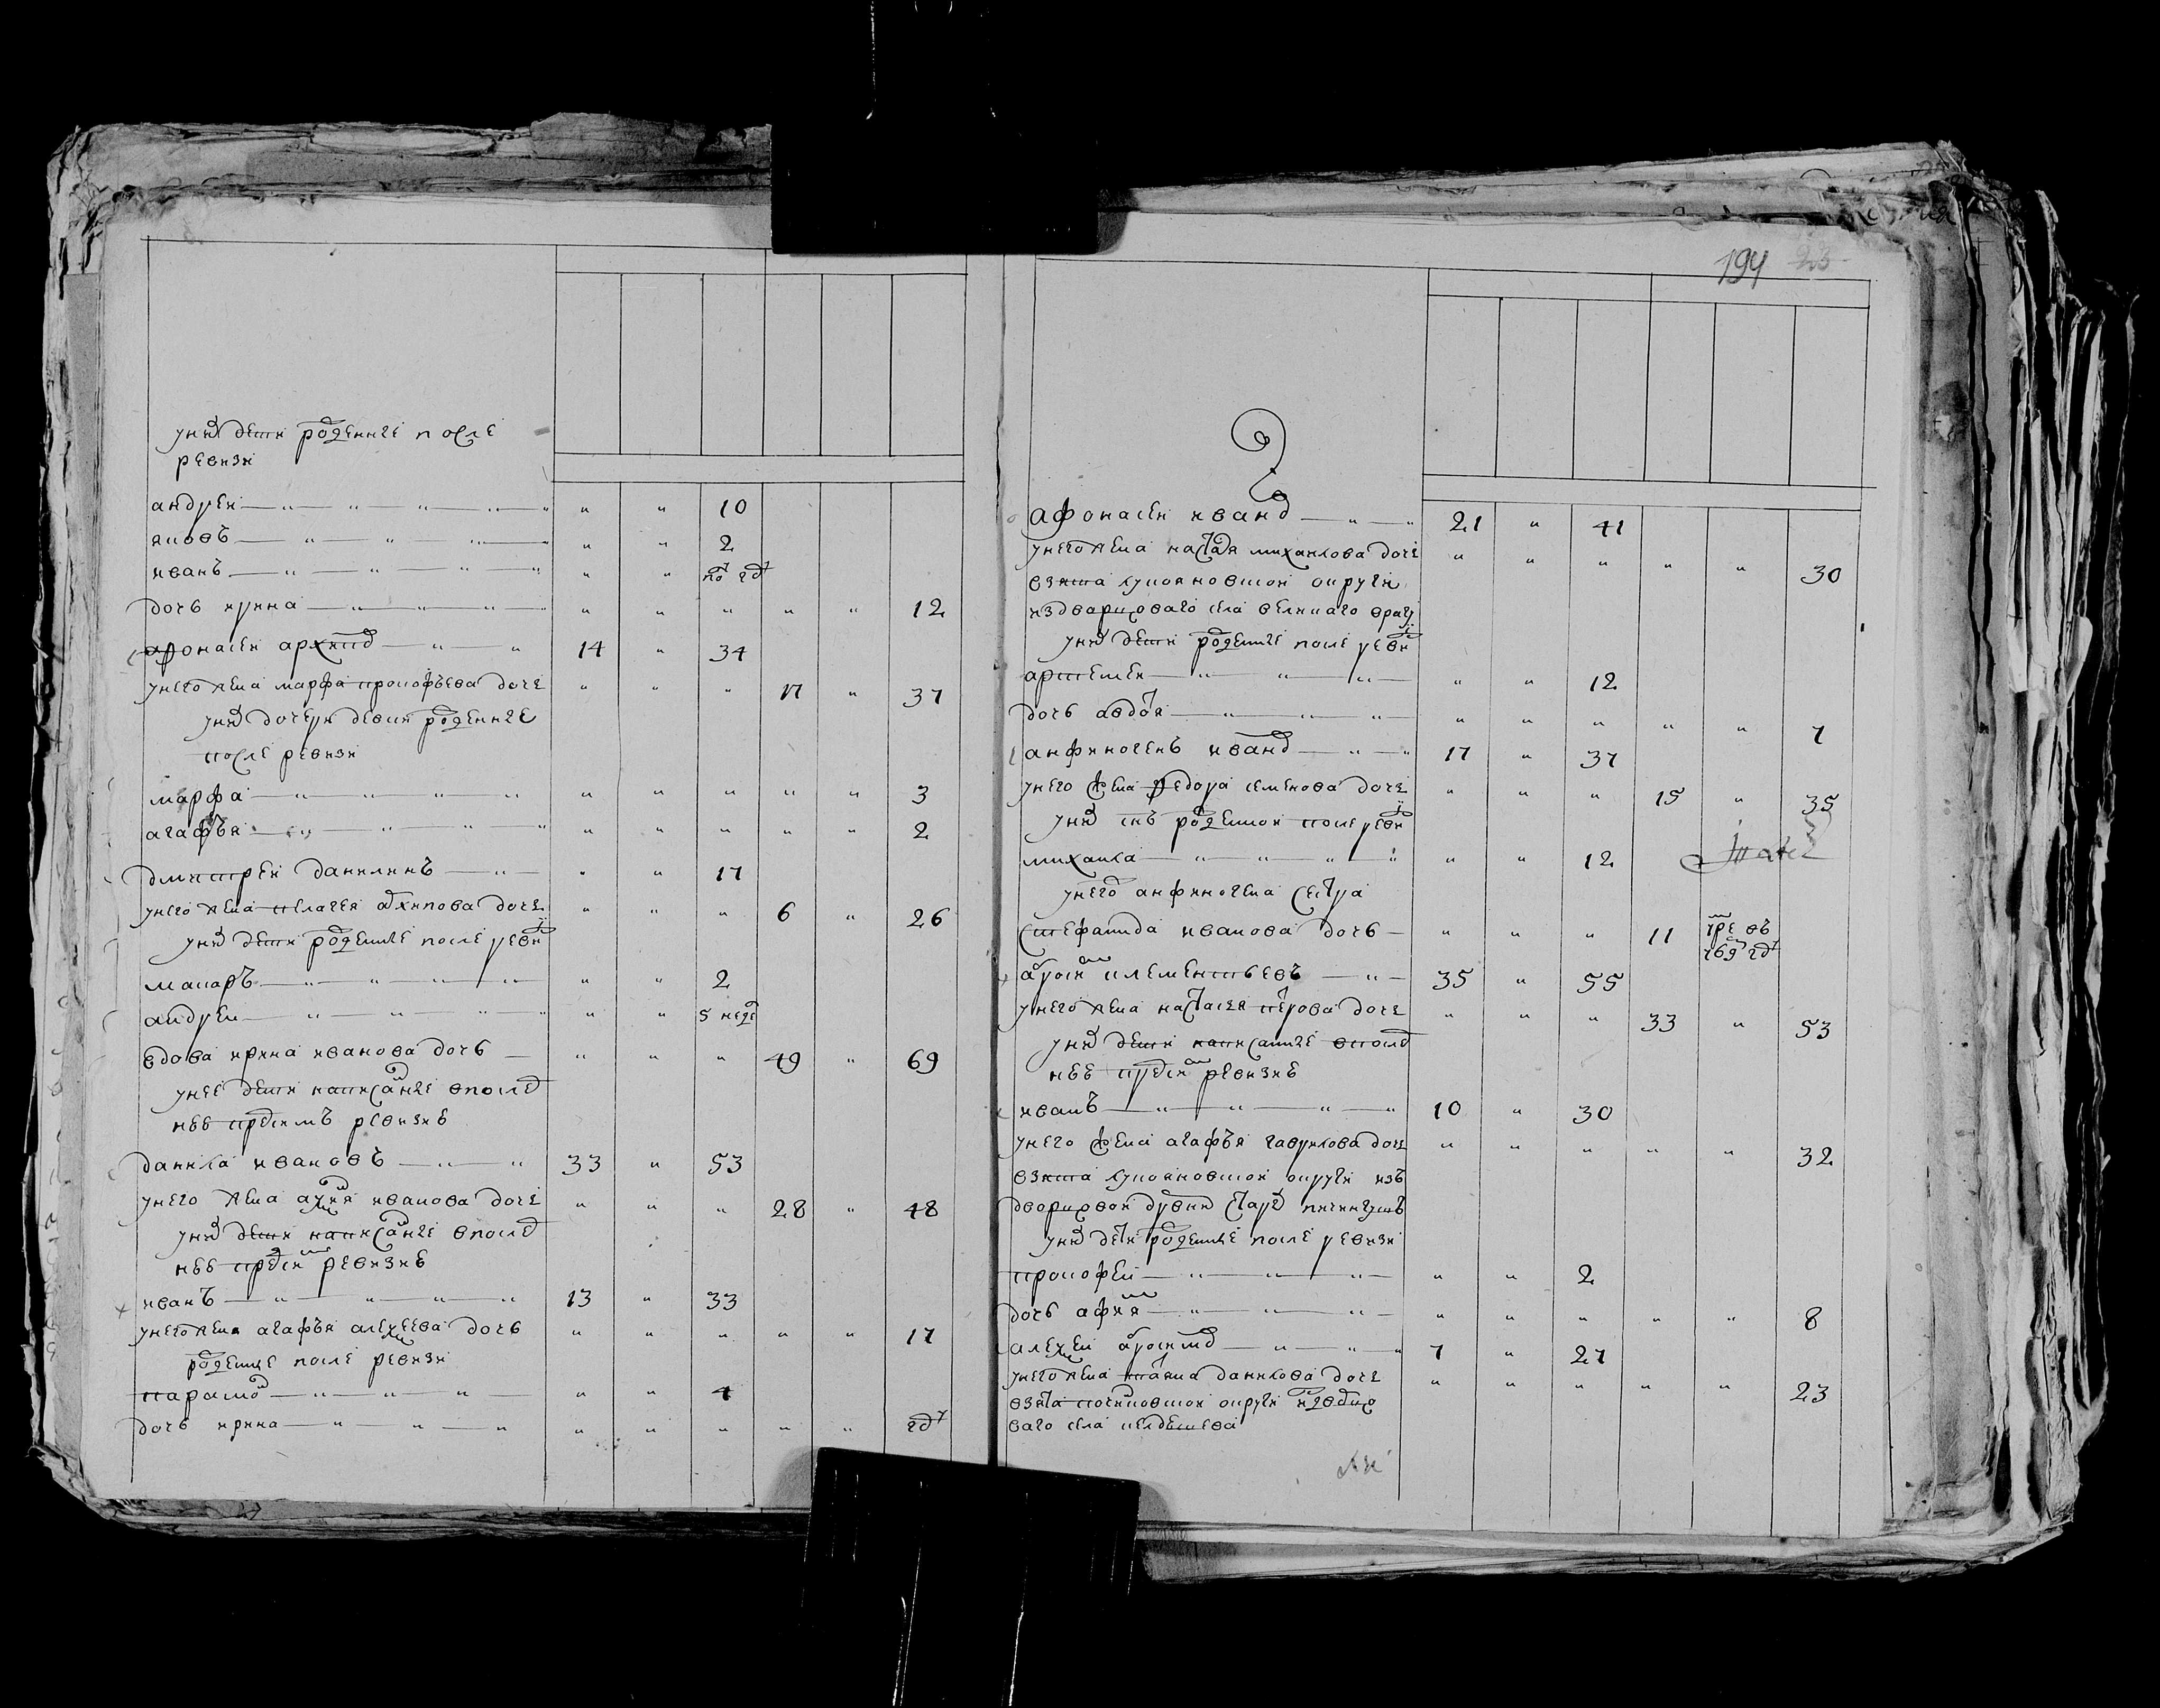 у них дети рожденные после
ревизи
андреи " " 10
яковъ " " 2
иванъ " " пол год
дочь ирина " " " " " 12
афонасеи архипов 14 " 34
у него жена марфа прокофьева дочь " " " 17 " 37
у них дочери девки рожденные
после ревизи
марфа " " " " " 3
агафья " " " " " 2
дмитреи данилинъ " " 17
у него жена пелагея архипова дочь " " " 6 " 26
у них дети рожденные после ревизи
макаръ " " 2
андреи " " 5 недел
вдова ирина иванова дочь " " " 49 " 69
у нее дети написанные впослед
неи пред симъ ревизие
данила ивановъ 33 " 53
у него жена иванова дочь " " " 28 " 48
у них дети написанные впослед
неи пред сим ревизие
иванъ 13 " 33
у него жена агафья алексеева дочь " " " " " 17
рожденые после ревизи
парамон " " 4
дочь ирина " " " " " год
194 23
афонасеи иванов 21 " 41
у него жена настасья михаилова дочь " " " " " 30
взята лукояновскои округи
из дворцоваго села великаго врагу
у них дети рожденые после ревизи
артемеи " " 12
дочь авдотя " " " " " 7
анфиногенъ иванов 17 " 37
у него жена федора семенова дочь " " " 15 " 35
у них снъ рожденнои после ревизи
михаила " " 12
у него анфиногена сестра
стефанида иванова дочь " " " 11
клементьевъ 35 " 55
у него жена настасея петрова дочь " " " 33 " 53
у них дети написанные впослед
неи пред сим ревизие
иванъ 10 " 30
у него жена агафья гаврилова дочь " " " " " 32
взята лукояновскои округи изъ
дворцовои дрвни стары
у них дети рожденные после ревизи
прокофеи " " 2
дочь афимя " " " " " 8
алексеи 7 " 27
у него жена данилова дочь " " " " " 23
взята починковскои округи из дворцо
ваго села